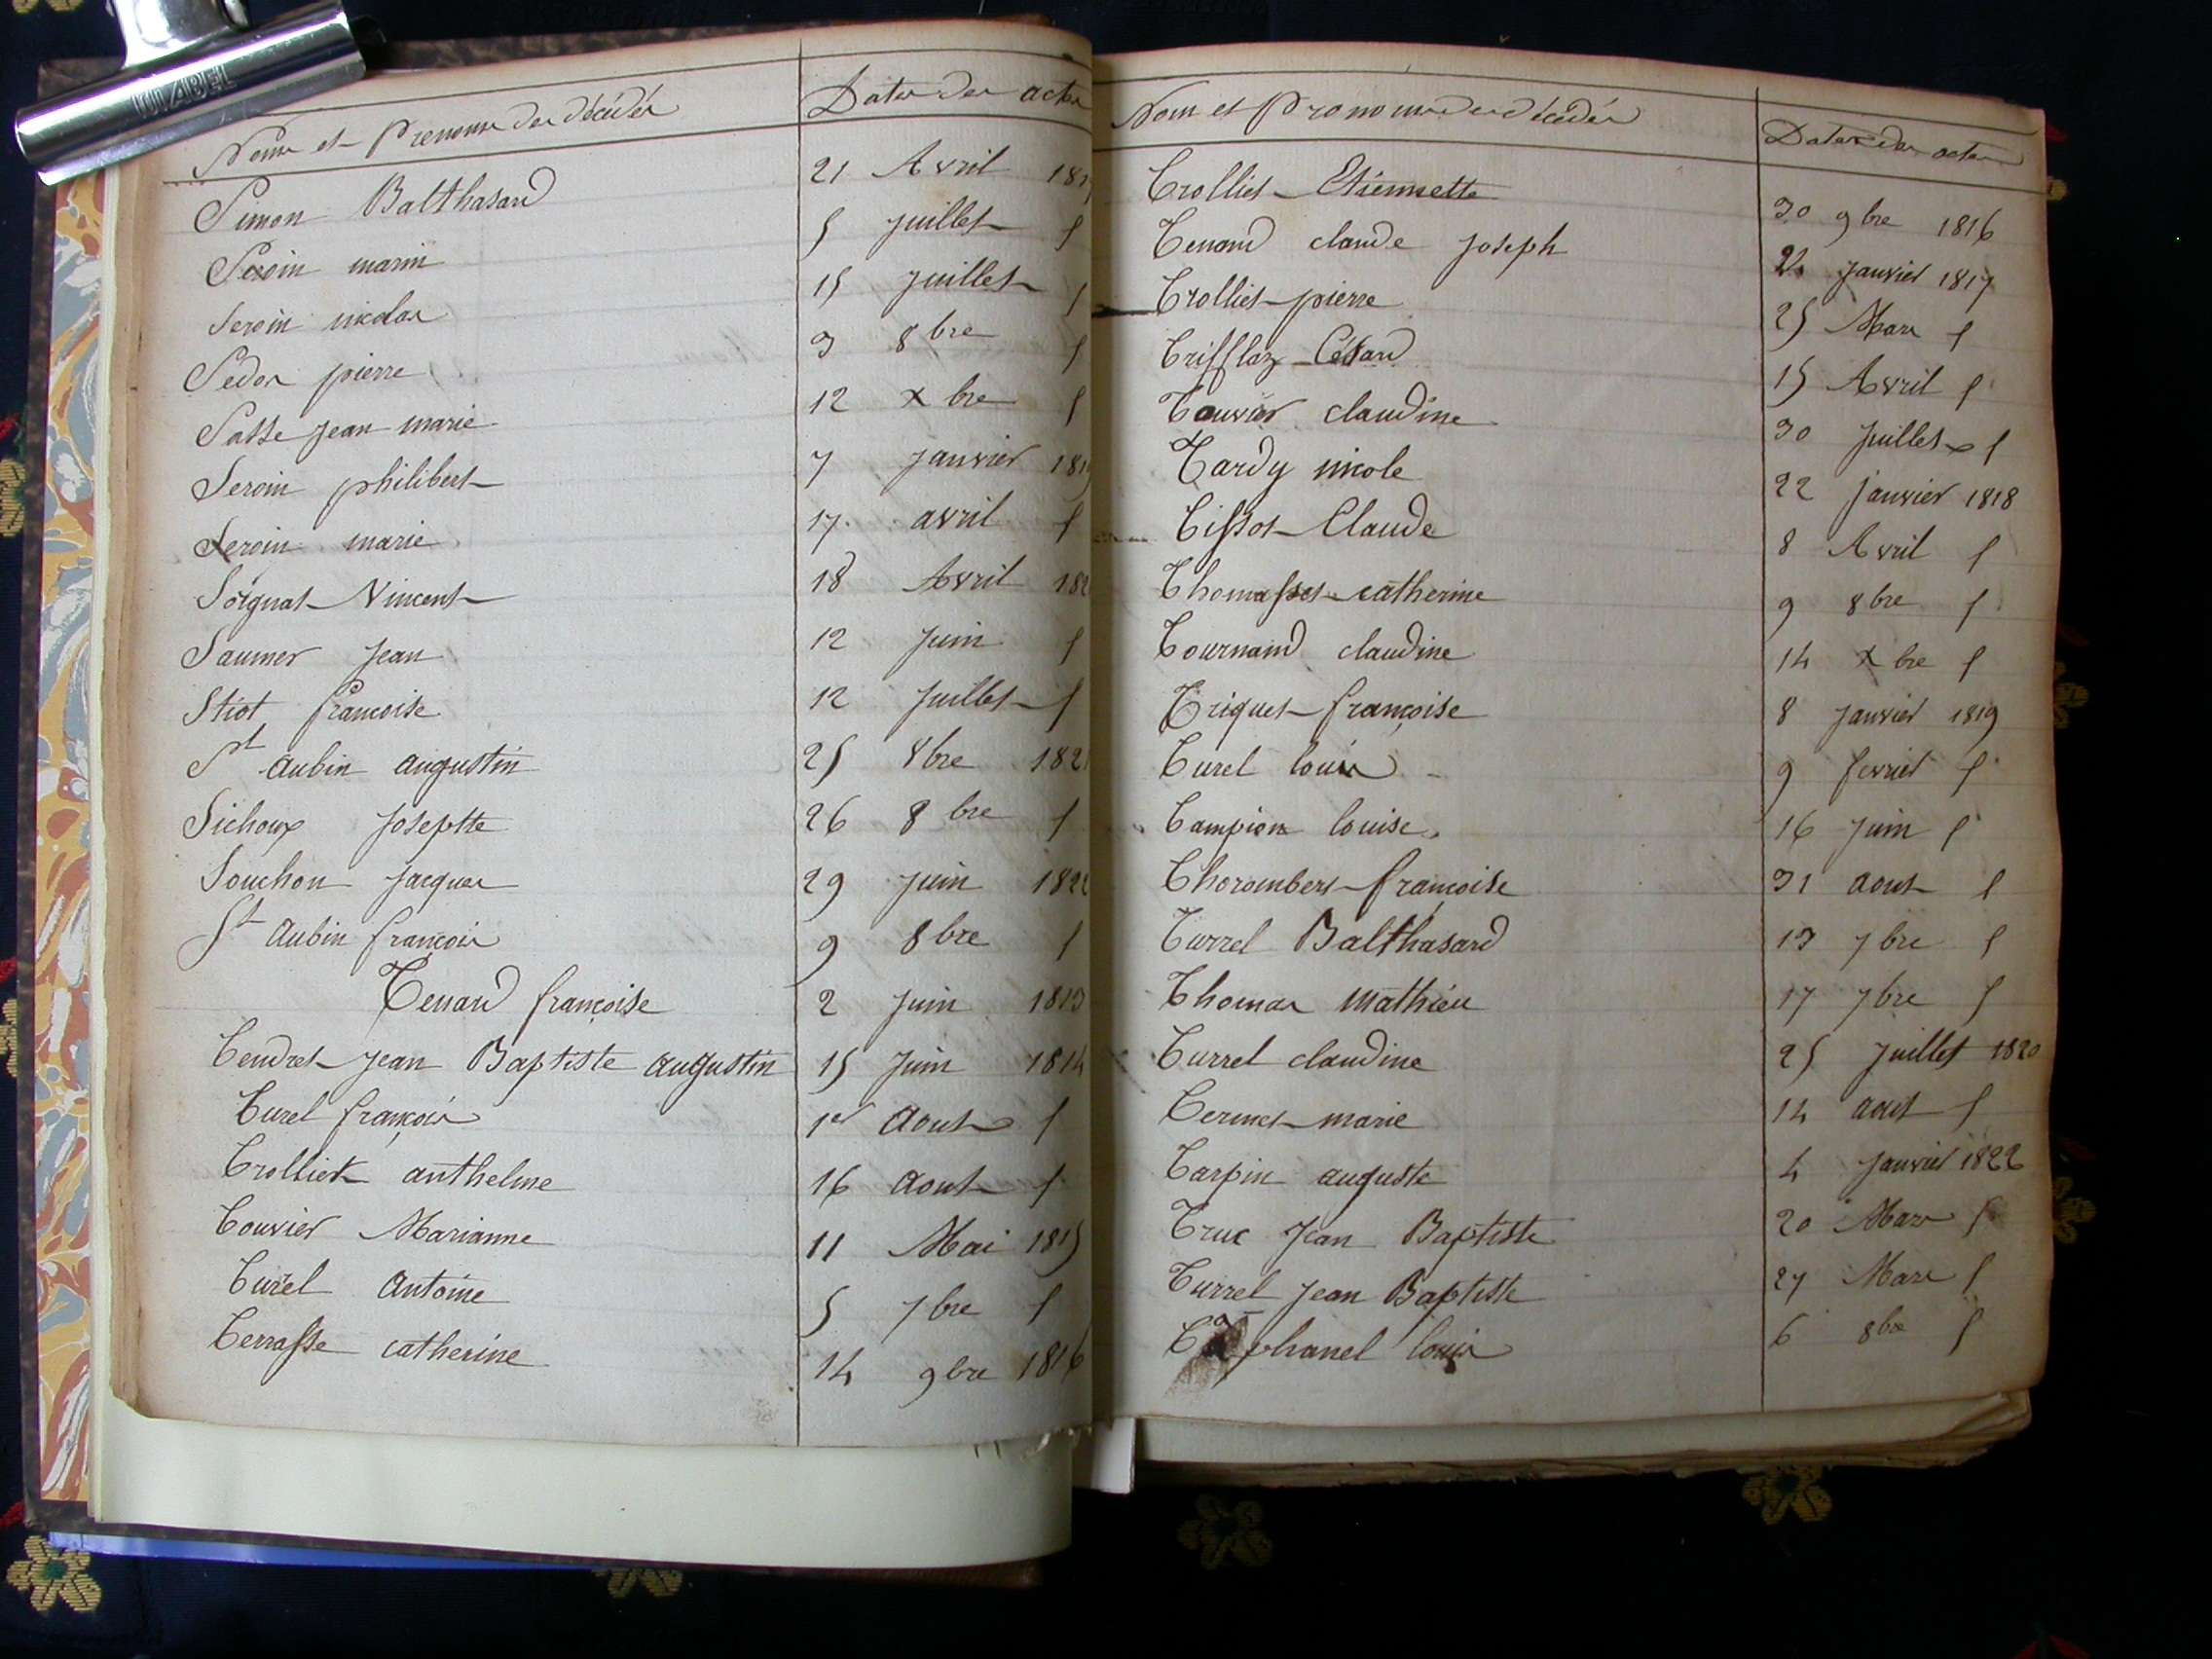 Noms et Prenoms des décédés Dates des actes
Simon Balthasard 21 Avril
Seroin marin 5 Juillet
Seroin nicolas 15 Juillet
Sedos pierre 3 8bre
Sasse Jean marie 12 xbre
Seroin philibert 7 Janvier
Seroin marie 17 avril
Soignat Vincent 18 Avril
Saumer Jean 12 Juin
Stiot françoise 12 Juillet
St Aubin augustin 25 8bre 1821
Sichoux Josephte 26 8bre
Souchon Jacques 29 Juin 1822
St Aubin françois 9 8bre
Tenard françoise 2 Juin 1813
Tendret Jean Baptiste augustin 15 Juin 1814
Turel françois 1er Aout
Trolliet anthelme 16 Aout
Touvier Marianne 11 Mai 1815
Turel Antoine 5 7bre
Terrasse catherine 14 9bre 1816
Noms et Prenoms des décédés Dates des actes
Trolliet Etiennette 30 9bre 1816
Tenard claude Joseph Janvier 1817
Trolliet pierre 25 Mars
Trifflaz César 15 Avril
Touvier claudine 30 Juillet
Tardy nicole 22 Janvier 1818
Tissot Claude 8 Avril
Thomasset catherine 9 8bre
Tournand claudine 14 xbre
Triquet françoise 8 Janvier 1819
Turel louis 9 fevrier
Tampion louise 16 Juin
Thorombert françoise 31 aout
Turrel Balthasard 13 7bre
Thomas Mathieu 17 7bre
Turrel claudine 25 Juillet 1820
Termet marie 14 aout
Tarpin auguste 4 Janvier 1822
Truc Jean Baptiste 20 Mars
Turrel Jean Baptiste 27 Mars
louis 6 8bre